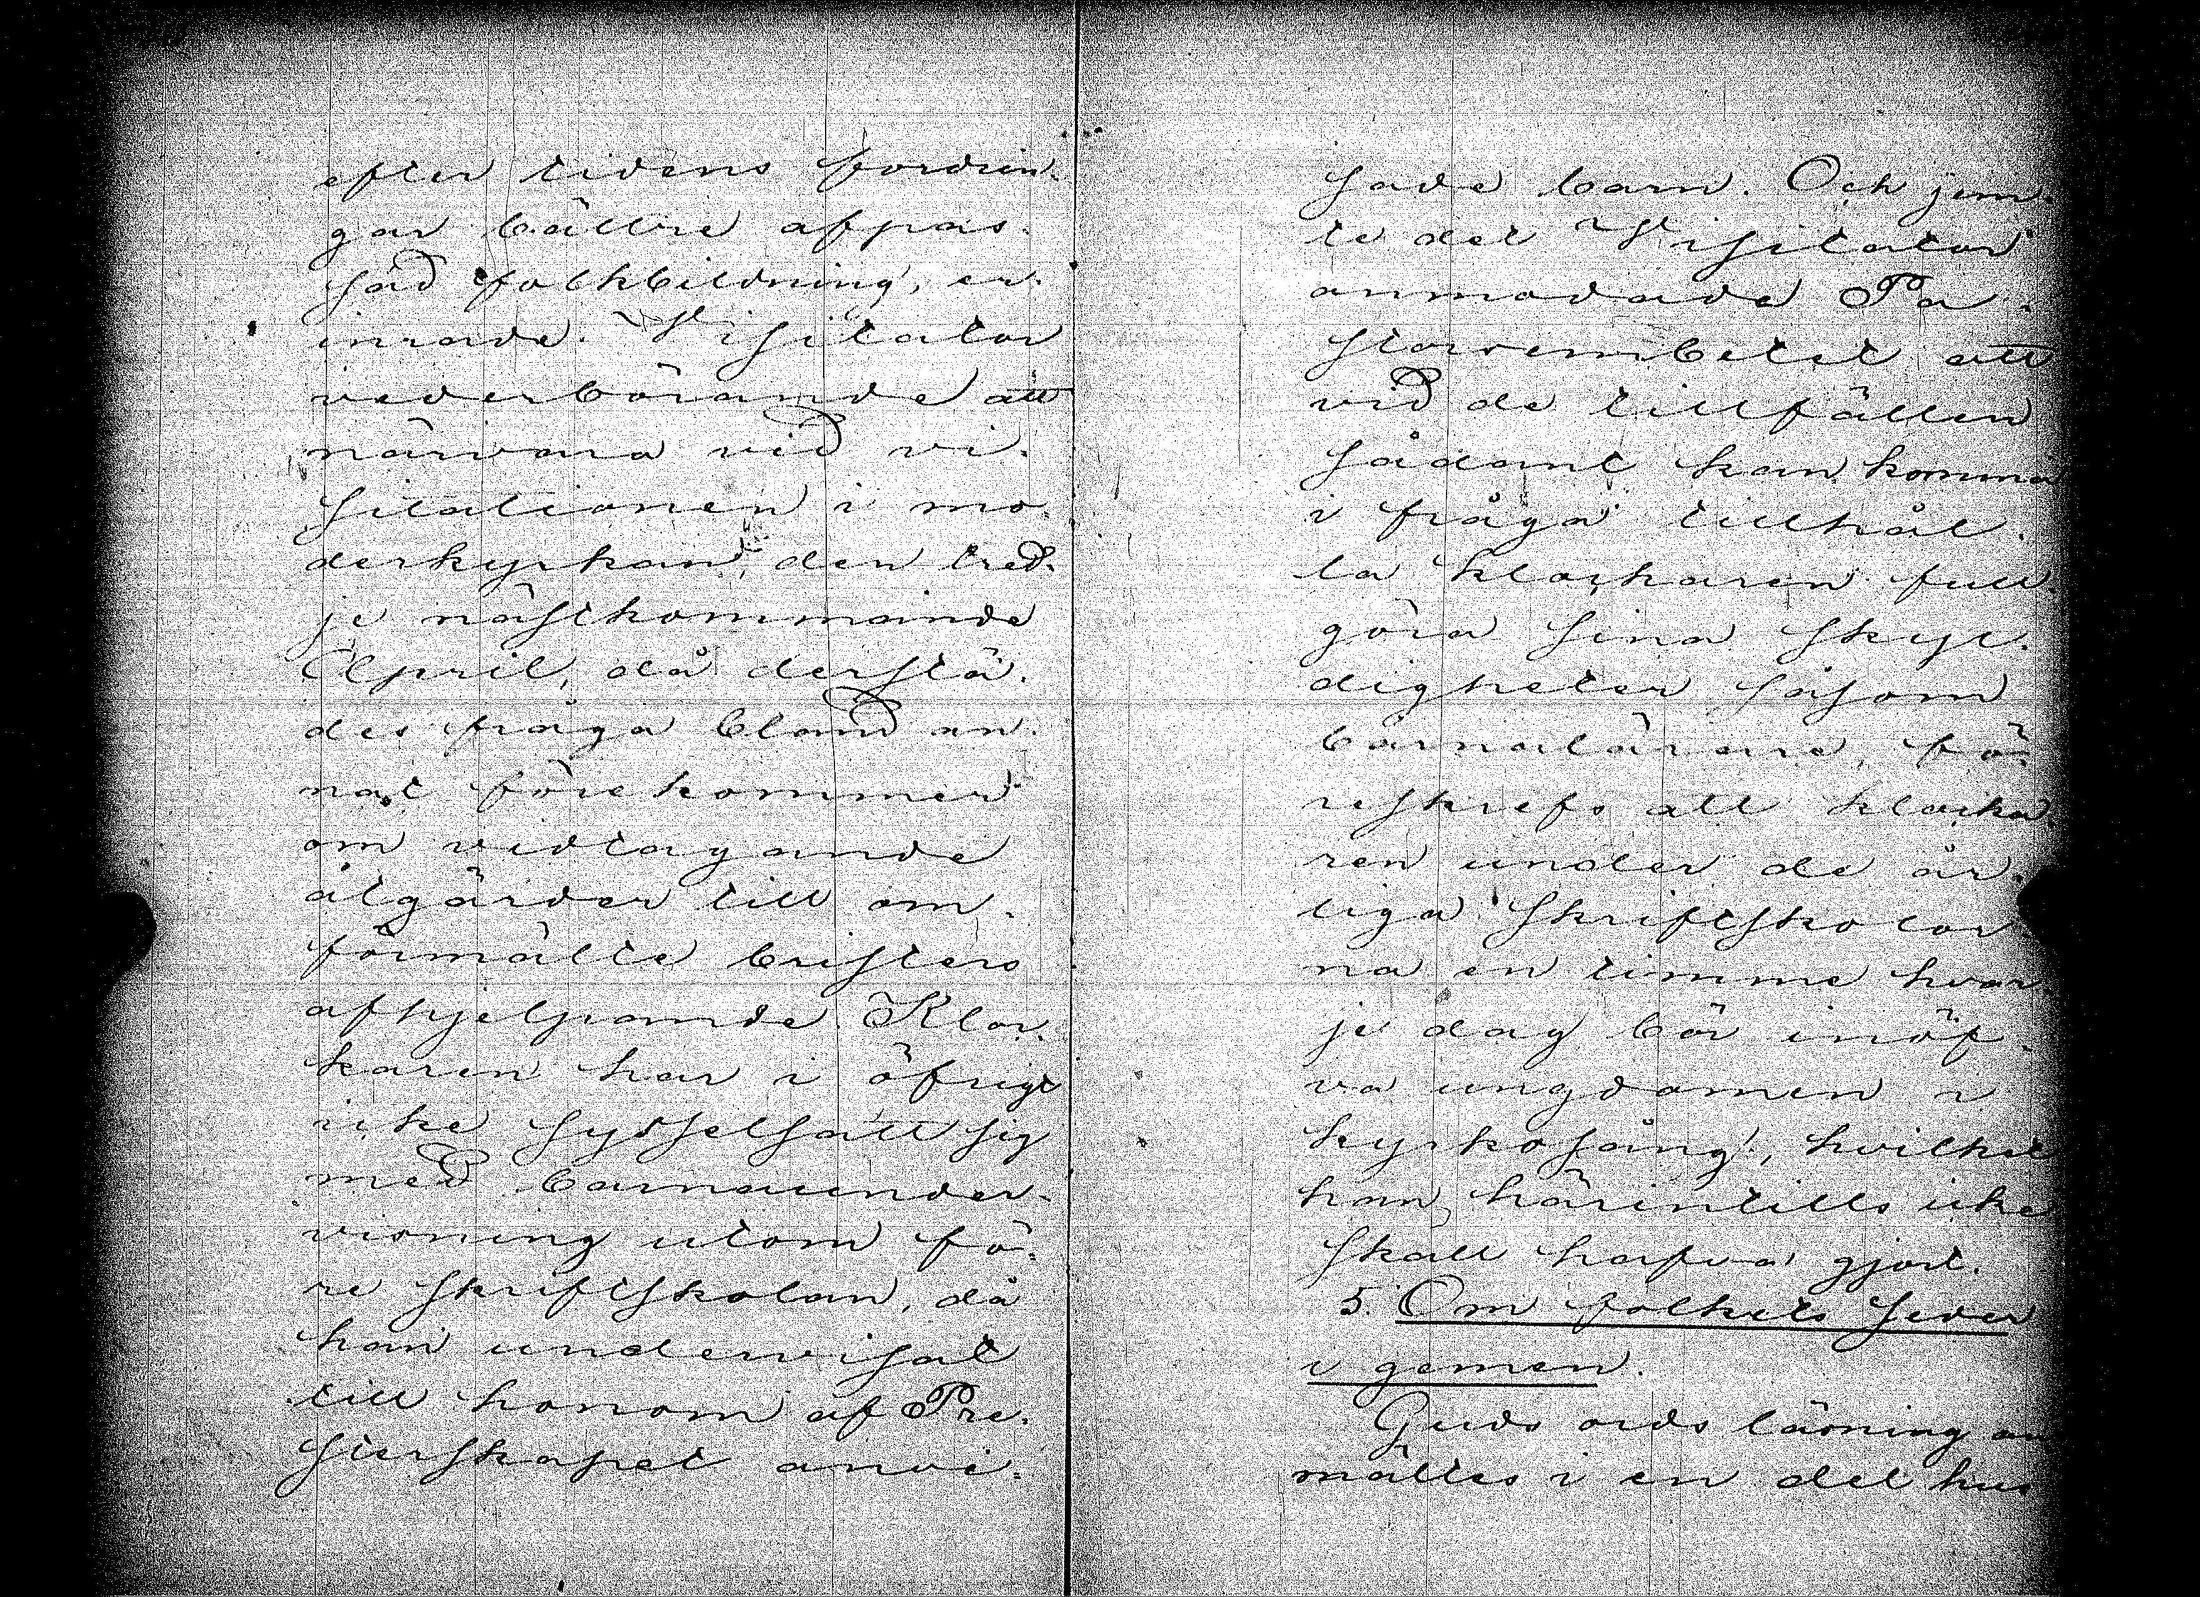 efter tidens fordrin-
gar bättre afpas-
sad folkbildning, er-
inrade Visitator
vederbörande att
närvara vid vi-
sitationen i mo-
derkyrkan den tred-
je nästkommande
April, då derstä-
des fråga bland an-
nat förekommer
om vidtagande
åtgärder till om-
förmälte bristers
afhjelpande. Kloc-
karen har i öfrigt
icke sysselsatt sig
med barnaunder-
visning utom fö-
re skriftskolan, då
han undervisat
till honom af Pre-
sterskapet anvi-
sade barn. Och jem-
te det Visitator
anmodade Pa-
storsembetet att
vid de tillfällen
sådant kan komma
i fråga tillhål-
la klockaren full-
göra sina skyl-
digheter såsom
barnalärare, fö-
reskrefs att klocka
ren under de år-
liga skriftskolor
na en timme hvar-
je dag bör inöf-
va ungdomen i
kyrkosång, hvilket
han härintills icke
skall hafva gjort.
5. Om folkets seder
i gemen.
Guds ords läsning an
mältes i en del hus